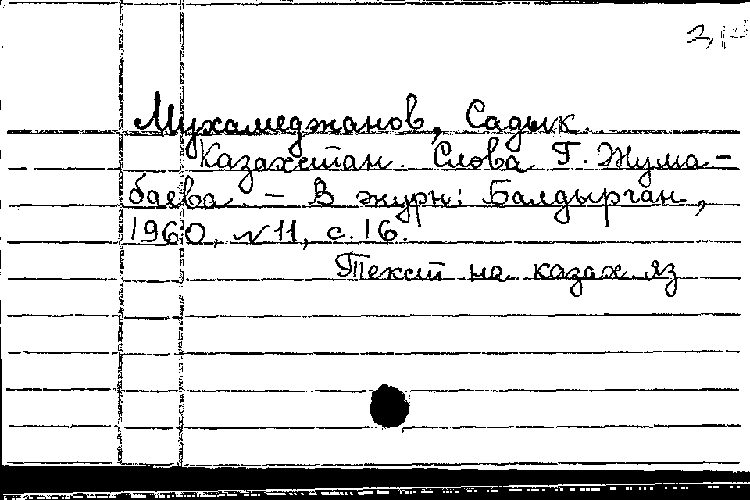 Мухамеджанов, Садык.
Казахстан. Слова Г. Жума-
баева. – В журн: Балдырган,
1960, №11, с. 16.
Текст на казах яз